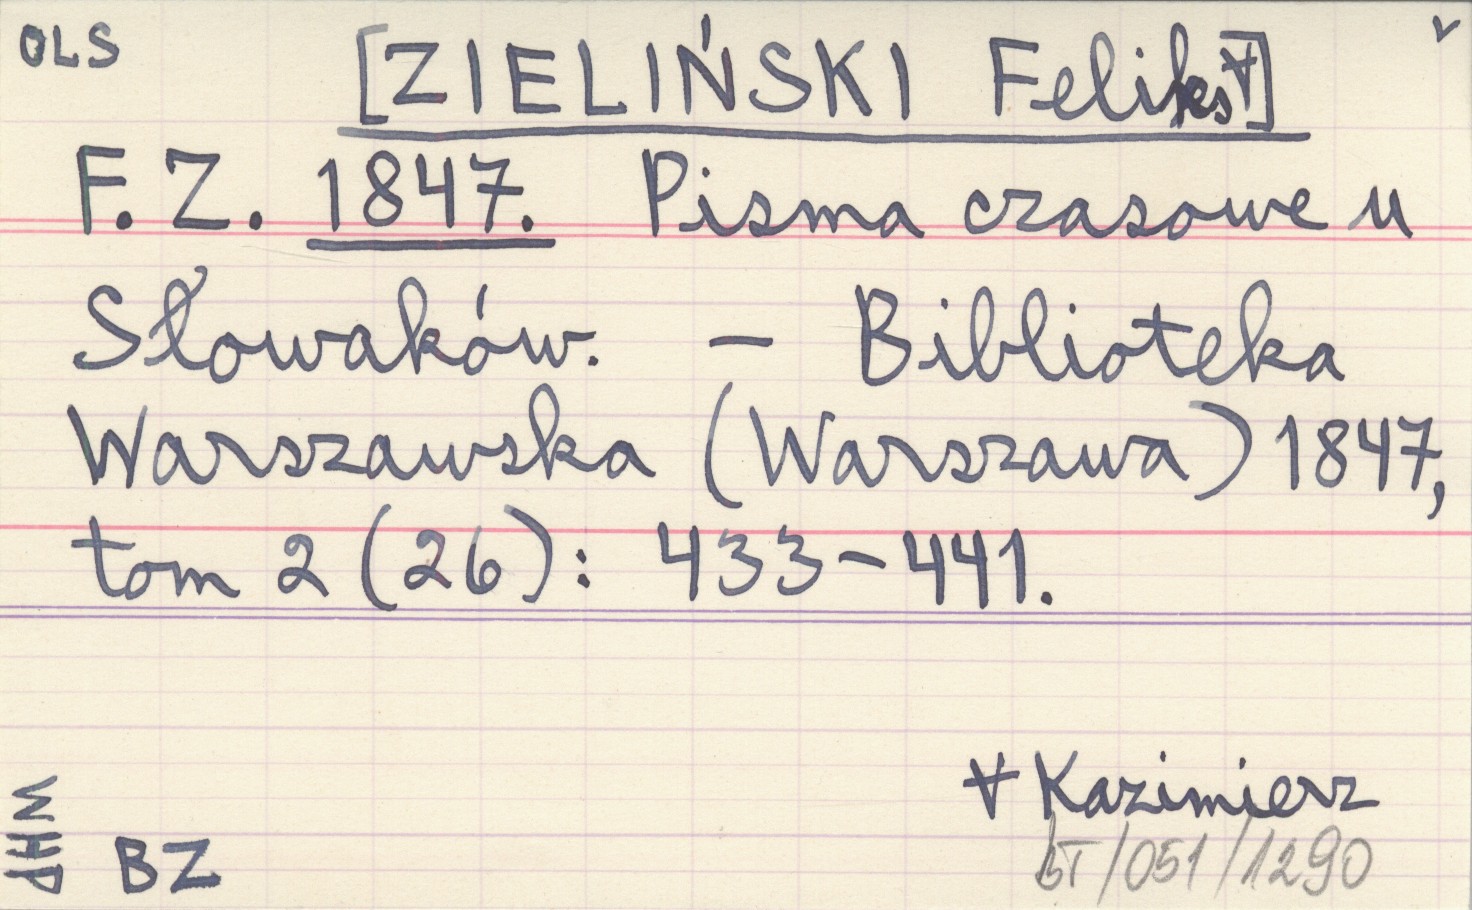 OLS
[ZIELIŃSKI Feliks∀]
F. Z. 1847. Pisma czasowe u
Słowaków. — Biblioteka
Warszawska (Warszawa) 1847,
tom 2 (26): 433-441.
∀ Kazimierz
BT/051/1290
BZ